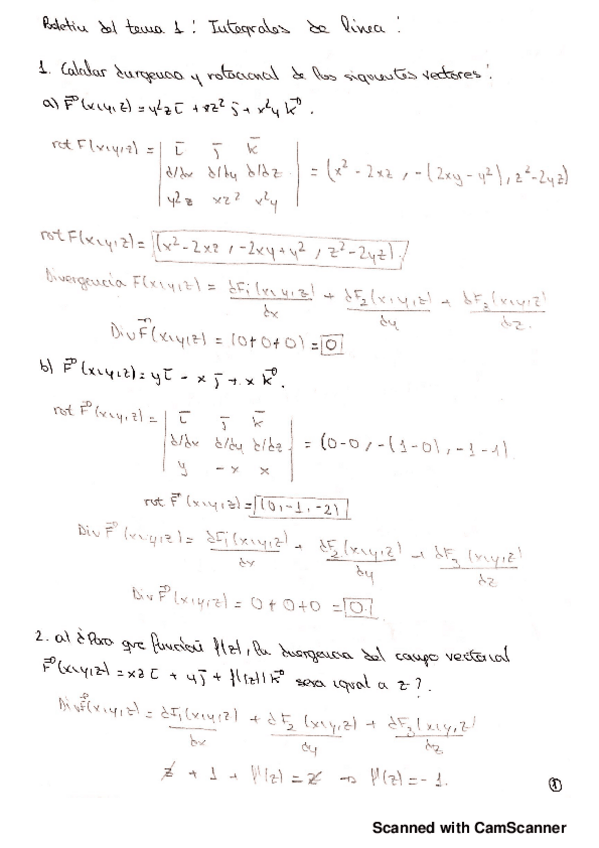 Boletin del tema 1: Integrales de linea:
1. Calcular divergencia y rotacional de los siguientes vectores:
a) F⃗(x,y,z) = y²z i̅ + xz² j̅ + x²y k⃗.
rot F(x,y,z) = | i̅ j̅ k̅ |
| d/dx d/dy d/dz | = (x² - 2xz, -(2xy - y²), z² - 2yz)
| y²z xz² x²y |
rot F(x,y,z) = (x² - 2xz, -2xy + y², z² - 2yz).
Divergencia F(x,y,z) = dF₁(x,y,z)/dx + dF₂(x,y,z)/dy + dF₃(x,y,z)/dz.
Div F⃗(x,y,z) = (0+0+0) = 0
b) F⃗(x,y,z) = y i̅ - x j̅ + x k⃗.
rot F⃗(x,y,z) = | i̅ j̅ k̅ |
| d/dx d/dy d/dz | = (0-0, -(1-0), -1-1).
| y -x x |
rot F⃗(x,y,z) = (0, -1, -2)
Div F⃗(x,y,z) = dF₁(x,y,z)/dx + dF₂(x,y,z)/dy + dF₃(x,y,z)/dz
Div F⃗(x,y,z) = 0+0+0 = 0.
2. a) ¿Para que función f(z), la divergencia del campo vectorial
F⃗(x,y,z) = xz i̅ + y j̅ + f(z) k⃗ sera igual a z?.
Div F⃗(x,y,z) = dF₁(x,y,z)/dx + dF₂(x,y,z)/dy + dF₃(x,y,z)/dz
z + 1 + f'(z) = z → f'(z) = -1.
1
Scanned with CamScanner